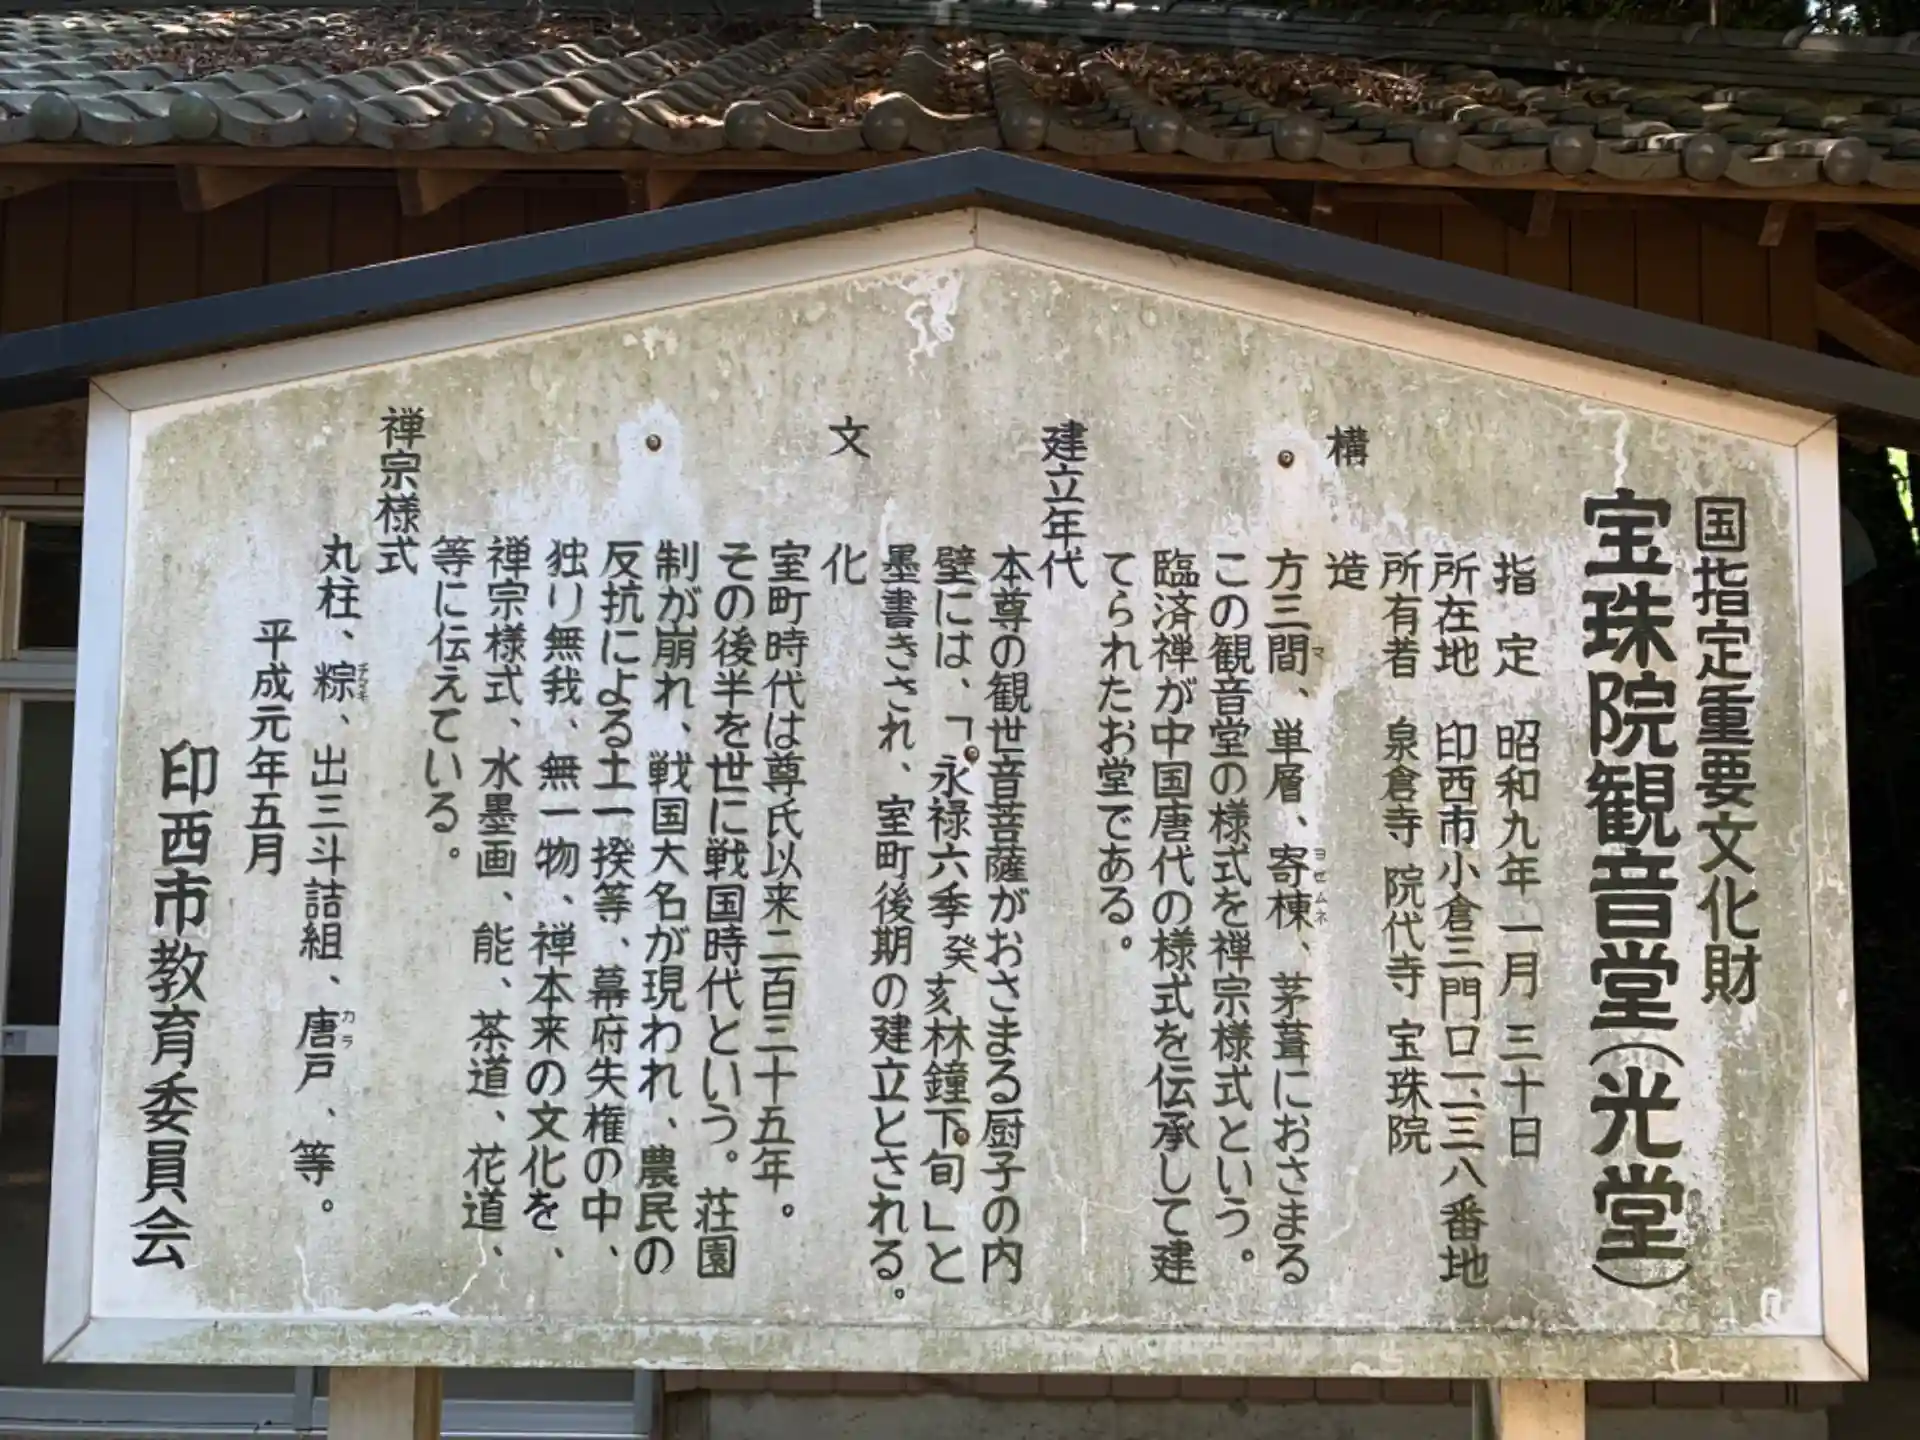 国指定重要文化財
宝珠院観音堂(光堂)
指 定 昭和九年一月三十日
所在地 印西市小倉三門口一、二三八番地
所有者 泉倉寺 院代寺 宝珠院
構 造
方三間、単層、寄棟、茅葺におさまる
マ ヨセムネ
この観音堂の様式を禅宗様式という。
臨済禅が中国唐代の様式を伝承して建
てられたお堂である。
建立年代
本尊の観世音菩薩がおさまる厨子の内
壁には、「永禄六季癸亥林鐘下旬」と
墨書きされ、室町後期の建立とされる。
文 化
室町時代は尊氏以来二百三十五年。
その後半を世に戦国時代という。荘園
制が崩れ、戦国大名が現われ、農民の
反抗による土一揆等、幕府失権の中、
独り無我、無一物、禅本来の文化を、
禅宗様式、水墨画、能、茶道、花道、
等に伝えている。
禅宗様式
丸柱、粽、出三斗詰組、唐戸、等。
チマキ カラ
平成元年五月
印西市教育委員会